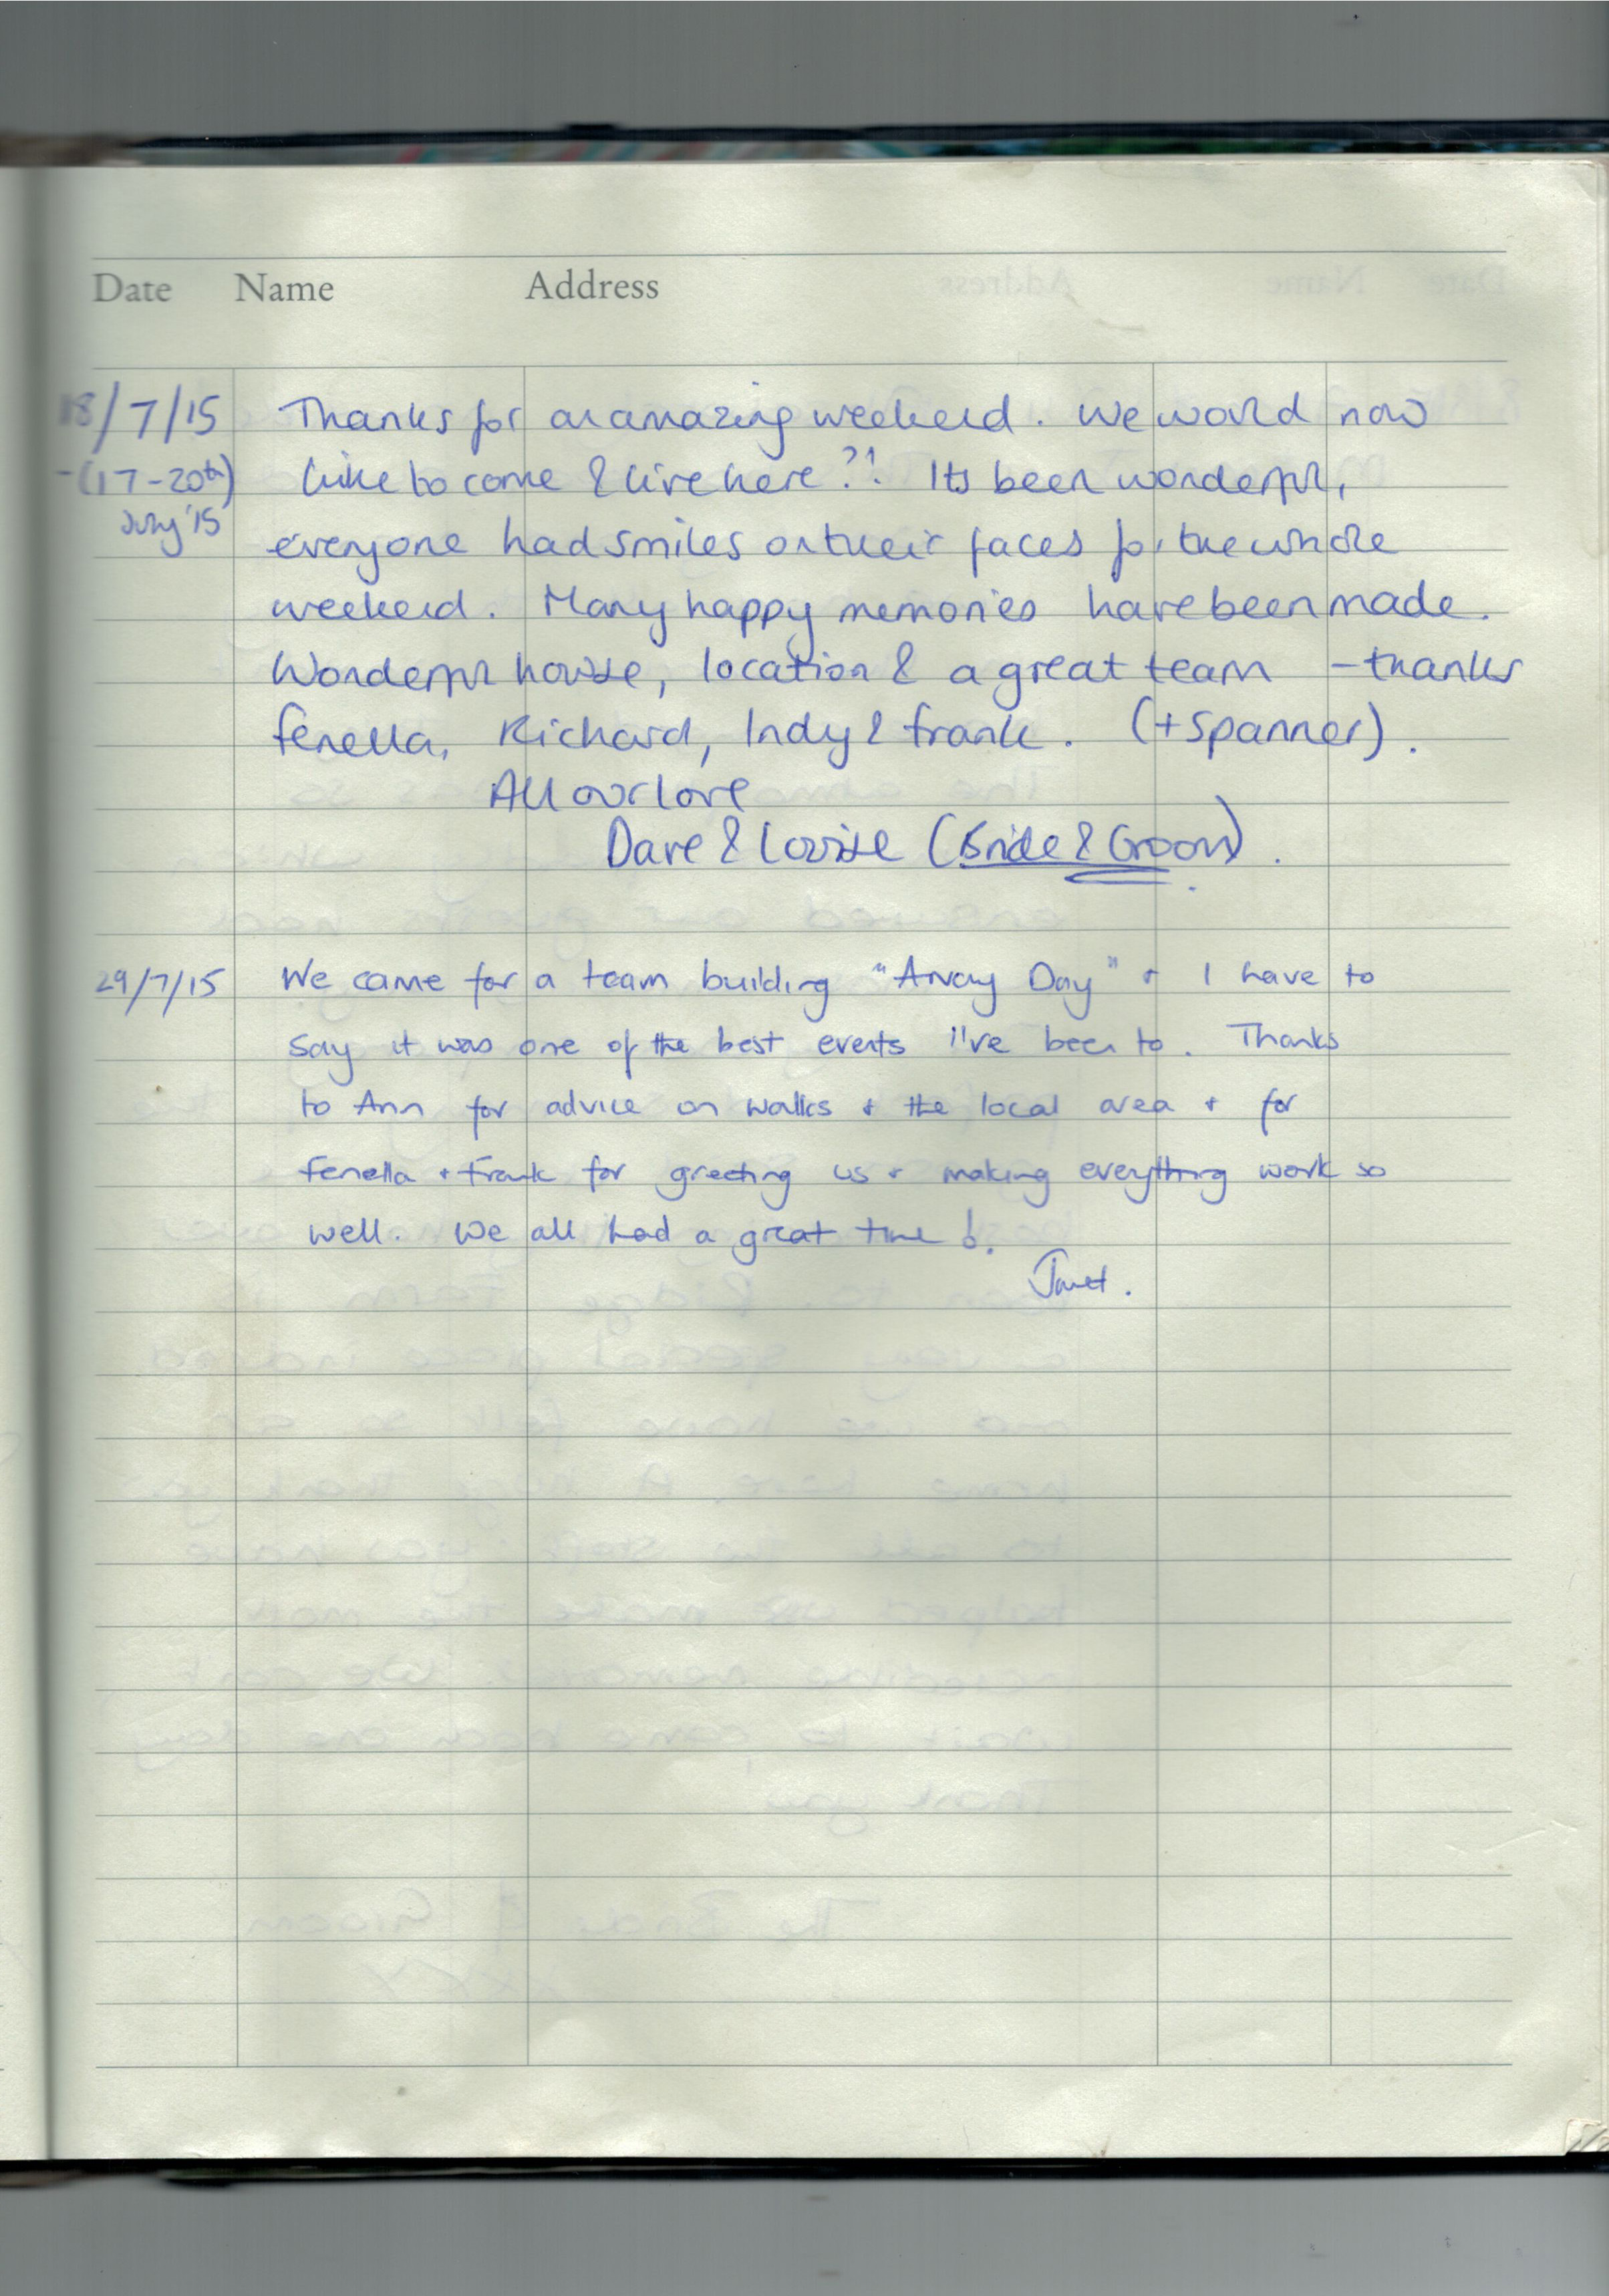 Date Name Address
18/7/15 Thanks for an amazing weekend. We would now
-(17-20th) like to come & live here?! Its been wonderful,
July '15
everyone had smiles on their faces for the whole
weekend. Many happy memories have been made.
Wonderful house, location & a great team - thanks
Fenella, Richard, Indy & Frank. (+ Spanner).
All our love
Dave & Louise (Bride & Groom).
29/7/15 We came for a team building "Away Day" + I have to
say it was one of the best events I've been to. Thanks
to Ann for advice on walks + the local area + for
Fenella + Frank for greeting us + making everything work so
well. We all had a great time!
Janet.